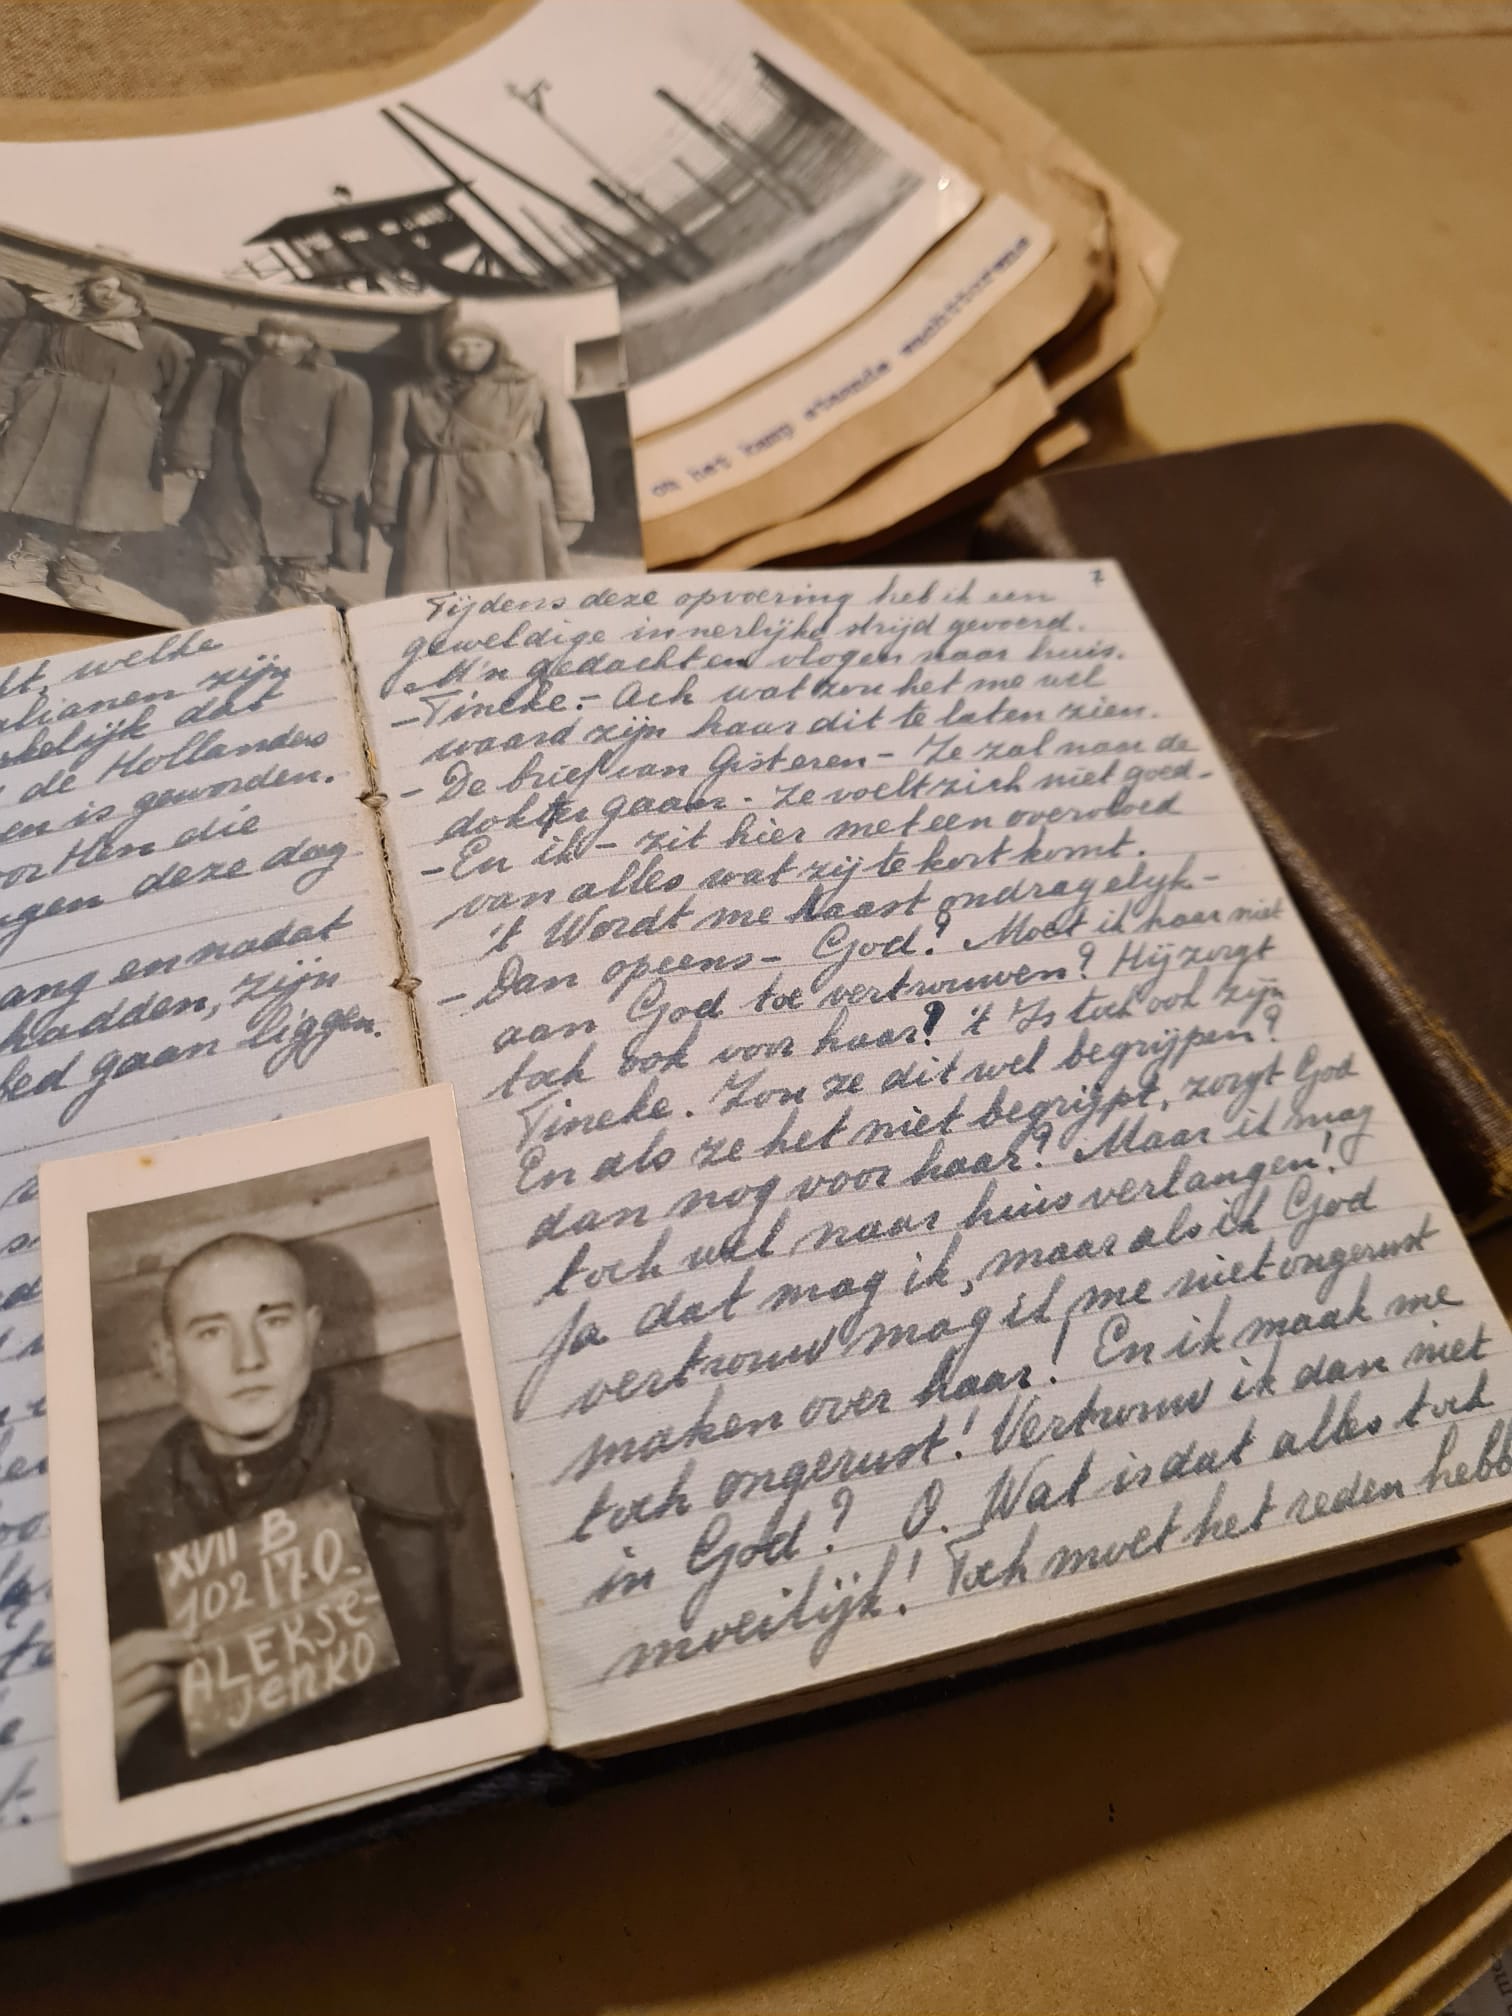 on het kamp staande wachttorens
welke
alianen zijn
kelijk dat
de Hollanders
en is geworden.
die
deze dag
ang en nadat
hadden, zijn
bed gaan liggen.
7
Tijdens deze opvoering heb ik een
geweldige innerlijke strijd gevoerd.
M'n gedachten vlogen naar huis.
- Tineke. - Ach wat zou het me wel
waard zijn haar dit te laten zien.
- De brief van Gisteren - Ze zal naar de
dokter gaan. Ze voelt zich niet goed -
- En ik - zit hier met een overvloed
van alles wat zij te kort komt.
't Wordt me haast ondragelijk -
- Dan opeens - God? Moet ik haar niet
aan God toe vertrouwen? Hij zorgt
toch ook voor haar? 't Is toch ook zijn
Tineke. Zou ze dit wel begrijpen?
En als ze het niet begrijpt, zorgt God
dan nog voor haar? Maar ik mag
toch wel naar huis verlangen!
Ja dat mag ik, maar als ik God
vertrouw mag ik me niet ongerust
maken over haar! En ik maak me
toch ongerust! Vertrouw ik dan niet
in God? O. Wat is dat alles toch
moeilijk! Toch moet het reden hebb
XVII B
102170.
ALEKSE-
JENKO